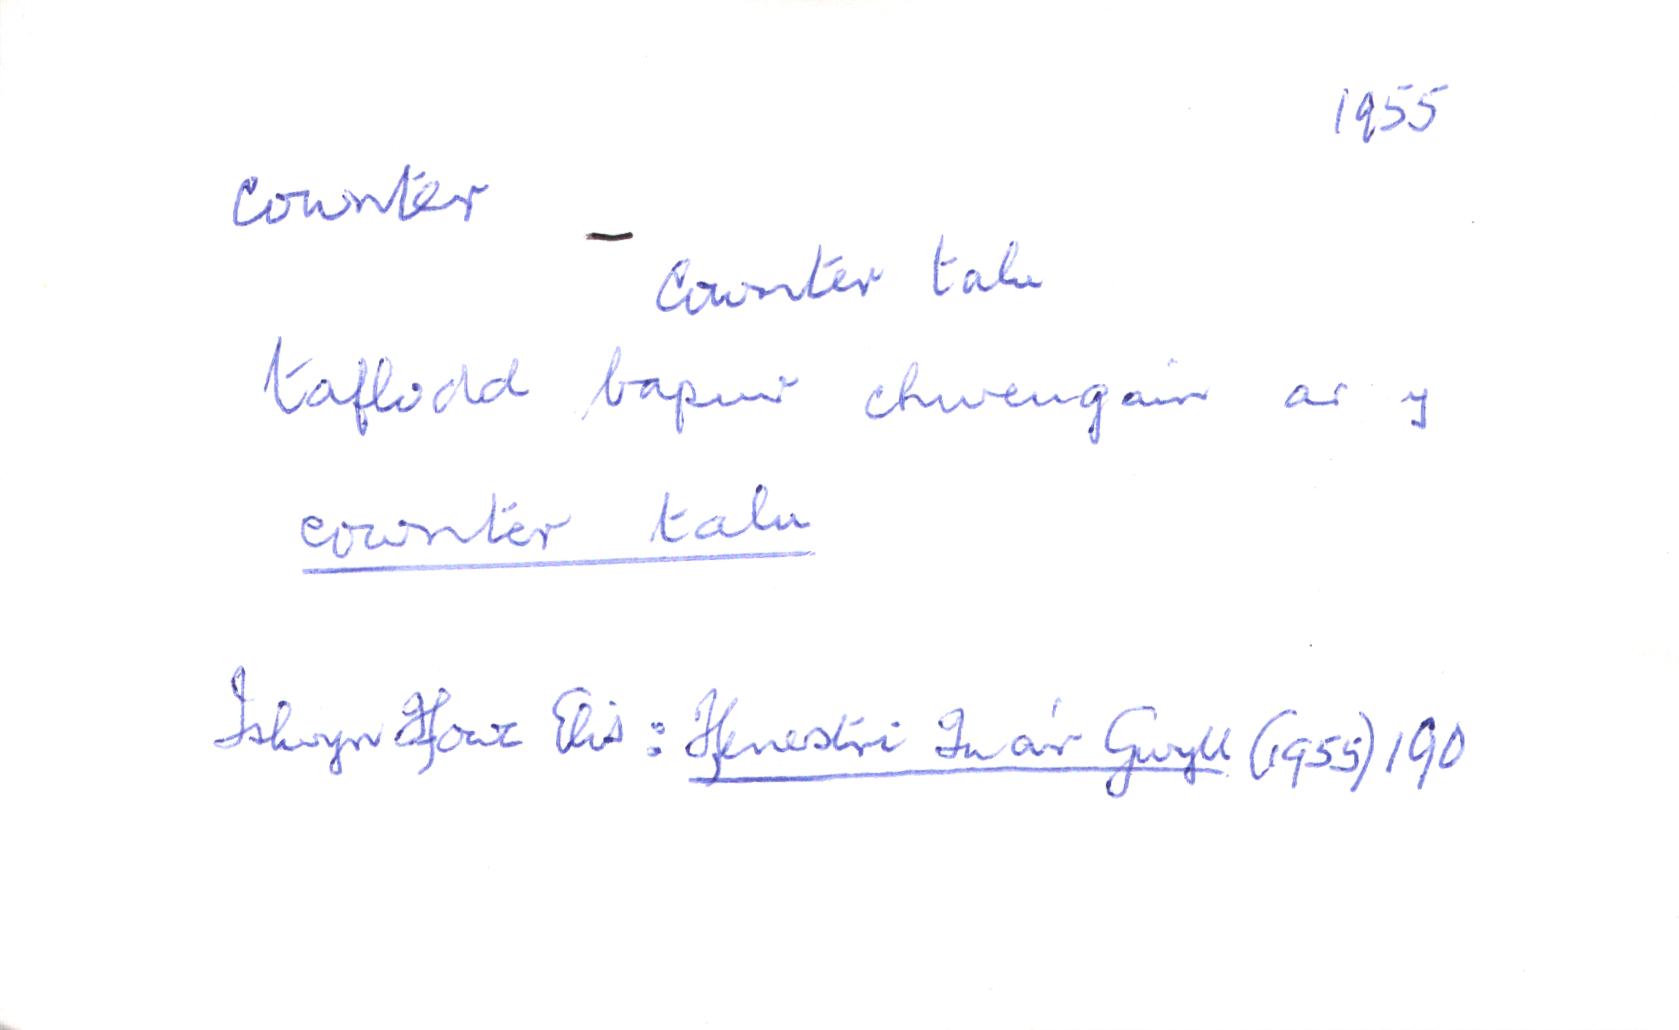 1955
cownter –
Cownter talu
taflodd bapur chweugain ar y
cownter talu
Islwyn Ffowc Elis: Ffenestri Tua'r Gwyll (1955) 190